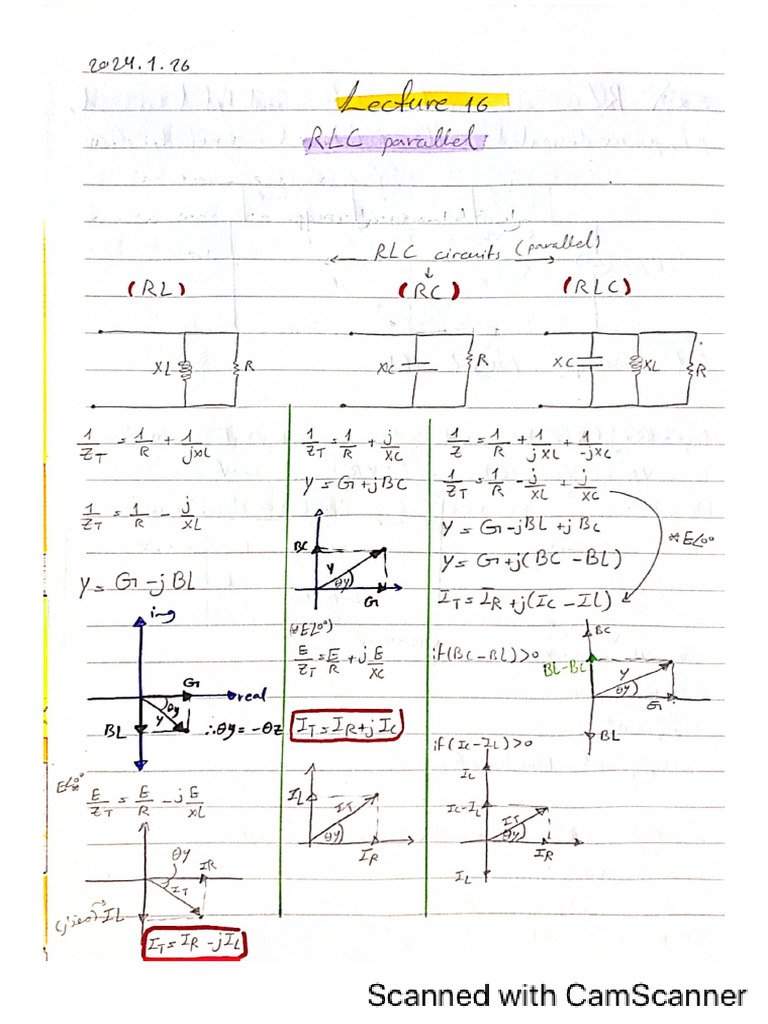 2024.1.26
Lecture 16
RLC parallel
RLC circuits (parallel)
(RL)
(RC)
(RLC)
XL R
XC R
XC XL R
1/ZT = 1/R + 1/jXL
1/ZT = 1/R - j/XL
Y = G - jBL
img
G
real
θy
Y
BL
∴θy = -θz
E∠0°
E/ZT = E/R - j E/XL
θy
IR
IT
IL
IT = IR - jIL
1/ZT = 1/R + j/XC
Y = G + jBC
BC
Y
θy
G
(*E∠0°)
E/ZT = E/R + j E/XC
IT = IR + jIC
IL
IT
θy
IR
1/Z = 1/R + 1/jXL + 1/-jXC
1/ZT = 1/R - j/XL + j/XC
*E∠0°
Y = G - jBL + jBC
Y = G + j(BC - BL)
IT = IR + j(IC - IL)
if (BC - BL) > 0
BC
BL-BC
Y
θy
G
BL
if (IC - IL) > 0
IL
IC-IL
IT
θy
IR
IL
Scanned with CamScanner